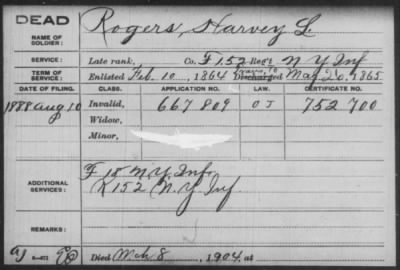 DEAD
NAME OF SOLDIER: Rogers, Harvey L.
SERVICE: Late rank, Co. F 152 Reg't N Y Inf
TERM OF SERVICE: Enlisted Feb. 10, 1864 Discharged May 20, 1865
DATE OF FILING. CLASS. APPLICATION NO. LAW. CERTIFICATE NO.
1888 Aug 10 Invalid, 667 809 O J 752 700
Widow,
Minor,
ADDITIONAL SERVICES: F 18 N.Y. Inf.
K 152 N.Y. Inf
REMARKS:
Died Mch 8, 1904, at